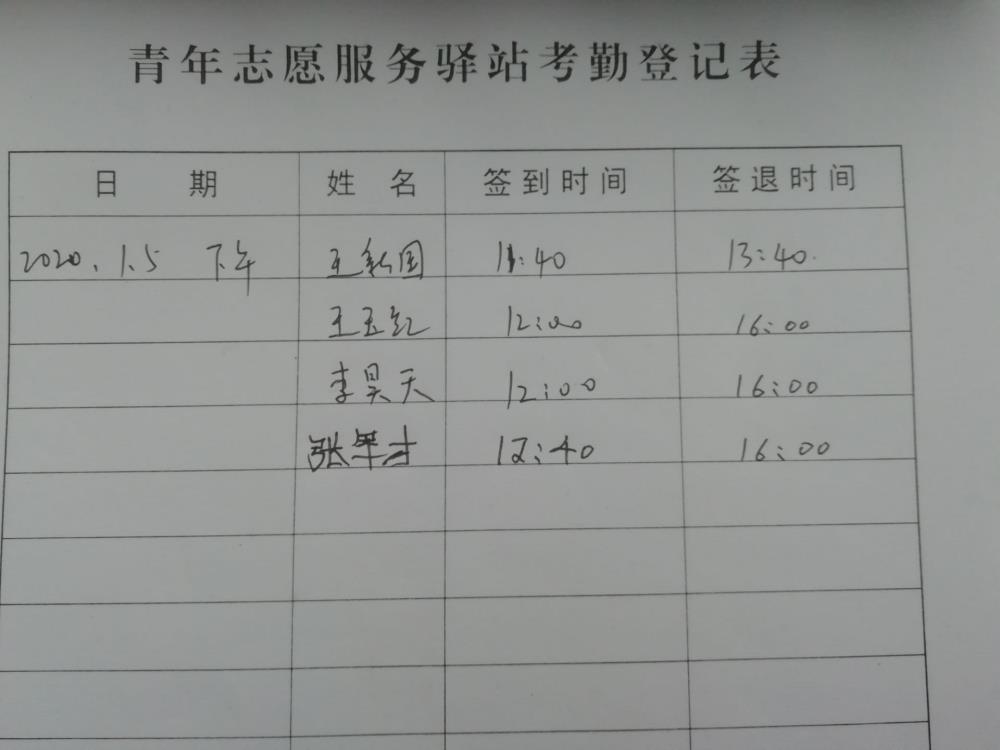 青年志愿服务驿站考勤登记表
日期 姓名 签到时间 签退时间
2020.1.5 下午 王新国 11:40 13:40.
王玉红 12:00 16:00
李昊天 12:00 16:00
张军才 12:40 16:00